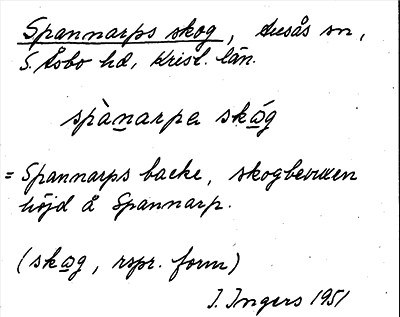 Spannarps skog, Ausås sn,
S. Åsbo hd, Krist. län.
spànarpa skǫ́g
= Spannarps backe, skogbevuxen
höjd å Spannarp.
(skog, rspr. form)
I. Ingers 1951